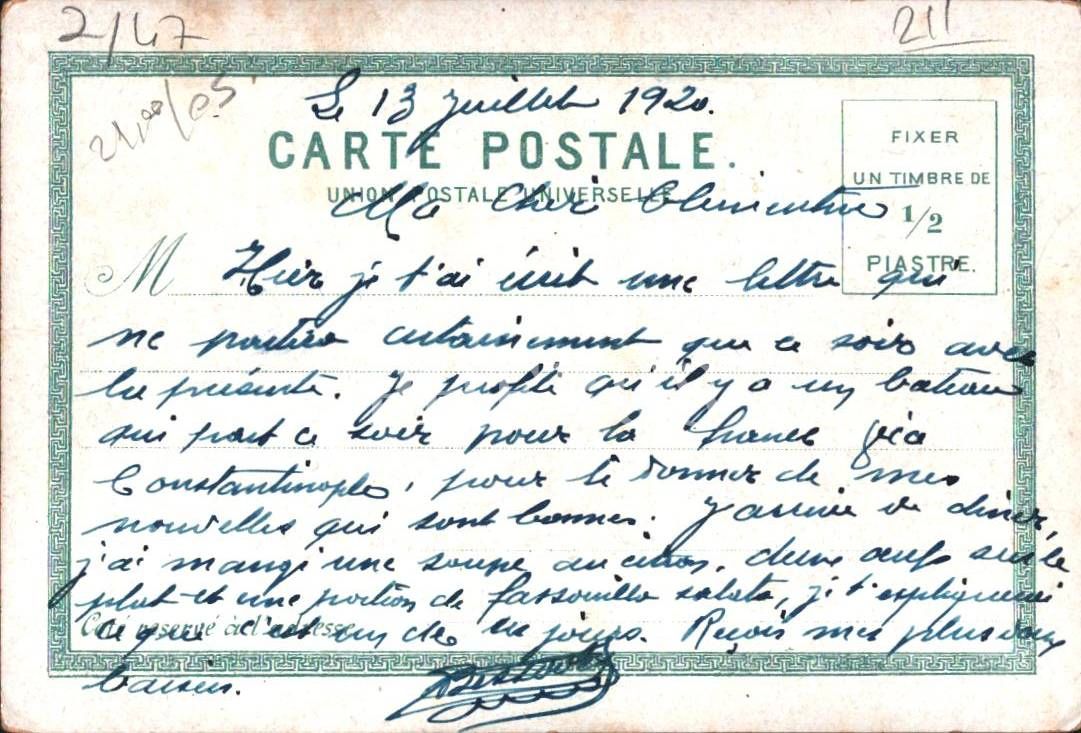 2/47
211
21,00/05
Le 13 Juillet 1920.
CARTE POSTALE.
UNION POSTALE UNIVERSELLE
FIXER
UN TIMBRE DE
1/2
PIASTRE.
Ma Cher Clementine
M
Hier je t'ai écrit une lettre qui
ne partira certainement que ce soir avec
la présente. Je profite qu'il y a un bateau
qui part ce soir pour la france via
Constantinople, pour te donner de mes
nouvelles qui sont bonnes. J'arrive de diner,
j'ai mangé une soupe au citron, deux oeufs sur le
plat et une portion de fassouilla salata, je t'expliquerai
ce que c'est un de ces jours. Reçois mes plus doux
Coté reservé à l'adresse
baisers.